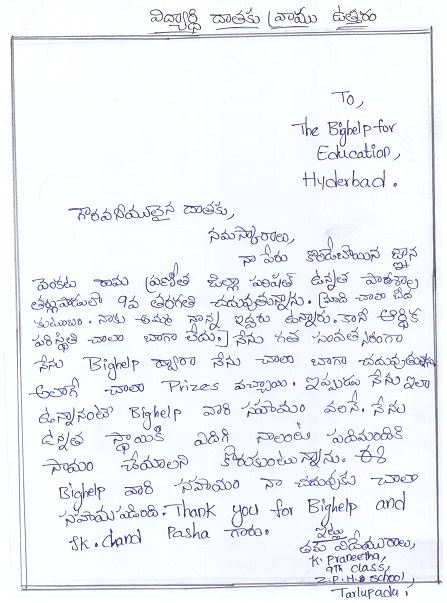 విద్యార్థి దాతకు వ్రాయు ఉత్తరం
To,
The Bighelp for
Education,
Hyderbad.
గౌరవనీయులైన దాతకు,
నమస్కారాలు,
నా పేరు
వెంకట రామ ప్రణీత జిల్లా పరిషత్ ఉన్నత పాఠశాల
తర్లుపాడులో 9వ తరగతి చదువుతున్నాను. మాది చాలా బీద
కుటుంబం. నాకు అమ్మ నాన్న ఇద్దరు ఉన్నారు. కానీ ఆర్థిక
పరిస్థితి చాలా బాగా లేదు. నేను గత సంవత్సరంగా
నేను Bighelp ద్వారా నేను చాలా బాగా చదువుతున్నాను
అలాగే చాలా Prizes వచ్చాయి. ఇప్పుడు నేను ఇలా
ఉన్నానంటే Bighelp వారి సహాయం వలనే. నేను
ఉన్నత స్థాయికి ఎదిగి నాలంటి పదిమందికి
సాయం చేయాలని కోరుకుంటున్నాను. ఈ
Bighelp వారి సహాయం నా చదువుకు చాలా
సహాయపడింది. Thank you for Bighelp and
SK. chand Pasha గారు.
ఇట్లు
తమ విధేయురాలు,
K. Praneetha,
9th class,
Z.P.H.S school,
Tarlupadu.